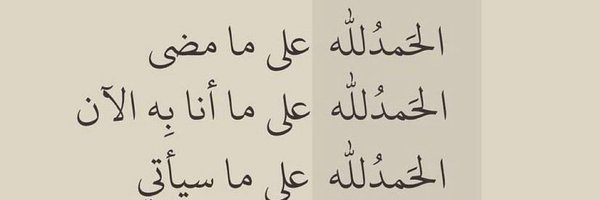 الحَمدُلله على ما مضى
الحَمدُلله على ما أنا بِه الآن
الحَمدُلله على ما سيأتي